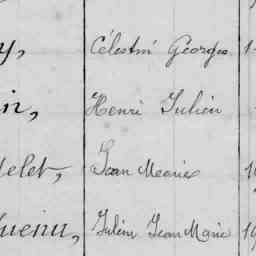 y, Célestin Georges 1
in, Henri Julien
elet, Jean Marie 19
uenu, Julien Jean Marie 19